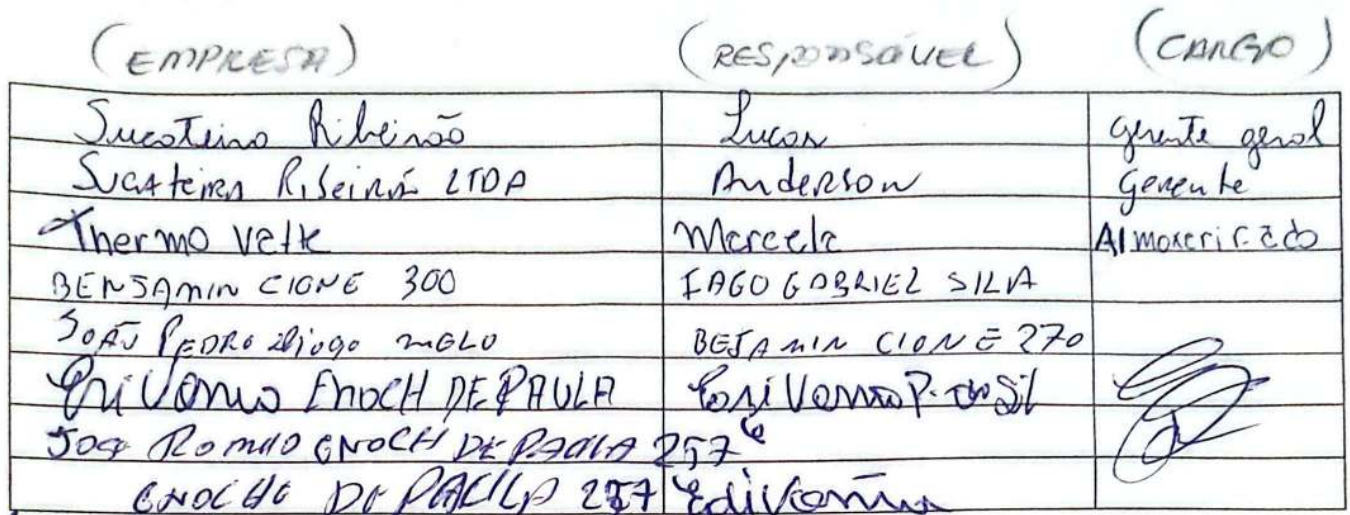 (EMPRESA) (RESPONSÁVEL) (CARGO)
Sucateira Ribeirão Lucas gerente geral
Sucateira Ribeirão LTDA Anderson Gerente
Thermo Marcela Almoxerifado
BENJAMIN CIONE 300 IAGO GABRIEL SILVA
JOÃO PEDRO Diogo MELO BEJAMIN CIONE 270
ENOCH DE PAULA
JOSE ROMILO ENOCH DE PAULA 257
ENOCHE DE PAULA 257